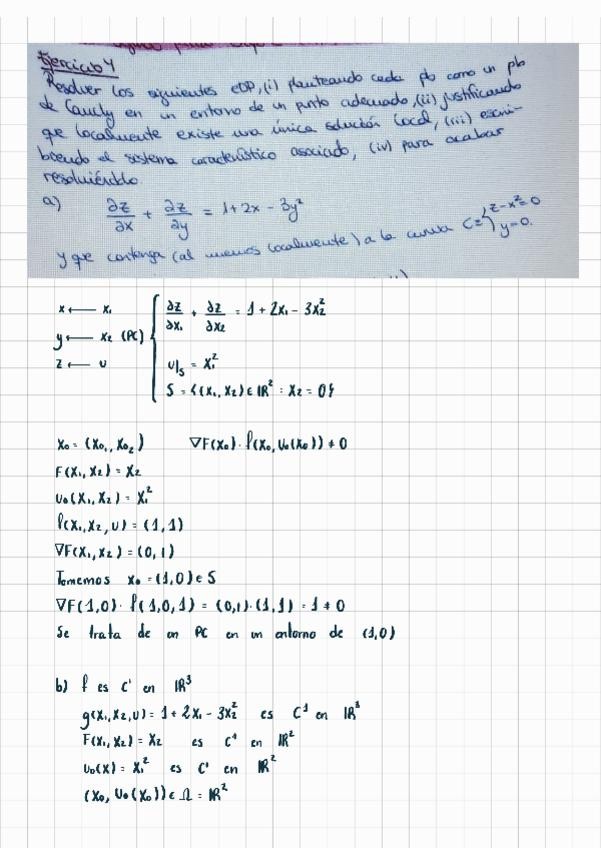 Ejercicio 4
Resolver los siguientes EDP, (i) planteando cada pb como un pb
de Cauchy en un entorno de un punto adecuado, (ii) justificando
que localmente existe una única solución local, (iii) escri-
biendo el sistema característico asociado, (iv) para acabar
resolviéndolo.
a) ∂z/∂x + ∂z/∂y = 1+2x - 3y²
y que contenga (al menos localmente) a la curva C≡{z-x²=0
y=0.
x ← x₁
y ← x₂ (PC)
z ← u
{ ∂z/∂x₁ + ∂z/∂x₂ = 1 + 2x₁ - 3x₂²
u|s = x₁²
S = {(x₁, x₂) ∈ ℝ² : x₂ = 0}
x₀ = (x₀₁, x₀₂) ∇F(x₀) · f(x₀, u₀(x₀)) ≠ 0
F(x₁, x₂) = x₂
u₀(x₁, x₂) = x₁²
f(x₁, x₂, u) = (1, 1)
∇F(x₁, x₂) = (0, 1)
Tomemos x₀ = (1, 0) ∈ S
∇F(1, 0) · f(1, 0, 1) = (0, 1) · (1, 1) = 1 ≠ 0
Se trata de un PC en un entorno de (1, 0)
b) f es C¹ en ℝ³
g(x₁, x₂, u) = 1 + 2x₁ - 3x₂² es C¹ en ℝ³
F(x₁, x₂) = x₂ es C¹ en ℝ²
u₀(x) = x₁² es C¹ en ℝ²
(x₀, u₀(x₀)) ∈ Ω = ℝ²